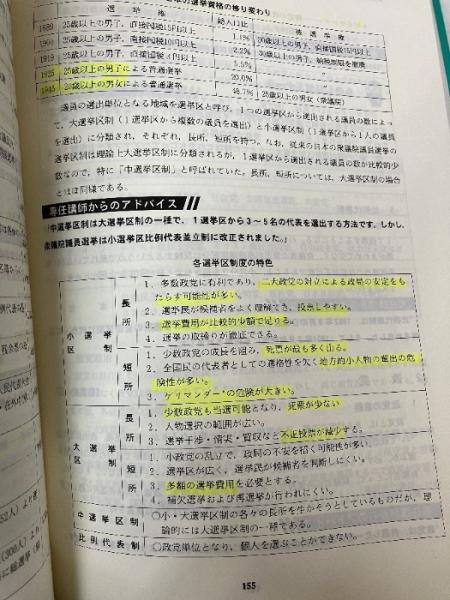 の選挙資格の移り変わり
選挙権 総人口比 被選挙権
1889 25歳以上の男子、直接国税15円以上 1.1% 30歳以上の男子、直接国税15円以上
1900 25歳以上の男子、直接国税10円以上 2.2% 30歳以上の男子、納税制限を撤廃
1919 25歳以上の男子、直接国税3円以上 5.5%
1925 25歳以上の男子による普通選挙 20.0%
1945 20歳以上の男女による普通選挙 48.7% 25歳以上の男女(衆議院)
議員の選出単位となる地域を選挙区と呼び、1つの選挙区から選出される議員の数によっ
て、大選挙区制(1選挙区から複数の議員を選出)と小選挙区制(1選挙区から1人の議員
を選出)に分類され、それぞれ、長所、短所を持つ。なお、従来の日本の衆議院議員選挙の
選挙区制は理論上大選挙区制に分類されるが、1選挙区から選出される議員の数が比較的少
数なので、特に「中選挙区制」と呼ばれていた。長所、短所については、大選挙区制の場合
とほぼ同様である。
専任講師からのアドバイス
「中選挙区制は大選挙区制の一種で、1選挙区から3~5名の代表を選出する方法です。しかし、
衆議院議員選挙は小選挙区比例代表並立制に改正されました。」
各選挙区制度の特色
小選挙区制
長所
1. 多数政党に有利であり、二大政党の対立による政局の安定をも
たらす可能性が多い。
2. 選挙民が候補者をよく理解でき、投票しやすい。
3. 選挙費用が比較的少額で足りる。
4. 選挙の取締りが徹底できる。
短所
1. 少数政党の成長を阻み、死票が最も多く出る。
2. 全国民の代表者としての適格性を欠く地方的小人物の選出の危
険性が多い。
3. ゲリマンダーの危険が大きい。
大選挙区制
長所
1. 少数政党も当選可能となり、死票が少ない
2. 人物選択の範囲が広い。
3. 選挙干渉・情実・買収など不正投票が減少する。
短所
1. 小政党の乱立で、政局の不安を招く可能性が多い。
2. 選挙区が広く、選挙民が候補者を判断しにくい。
3. 多額の選挙費用を必要とする。
4. 補欠選挙および再選挙が行われにくい。
中選挙区制 ○小・大選挙区制の各々の長所を生かそうとしているものだが、理
論的には大選挙区制の一種である。
比例代表制 ○政党単位となり、個人を選ぶことができない。
155